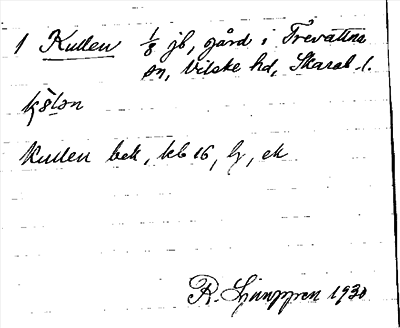 1 Kullen 1/8 jb, gård i Trevattna
sn, Vilske hd, Skarab. l.
Kullen bek, kb 16, ly, ek
R. Ljunggren 1930